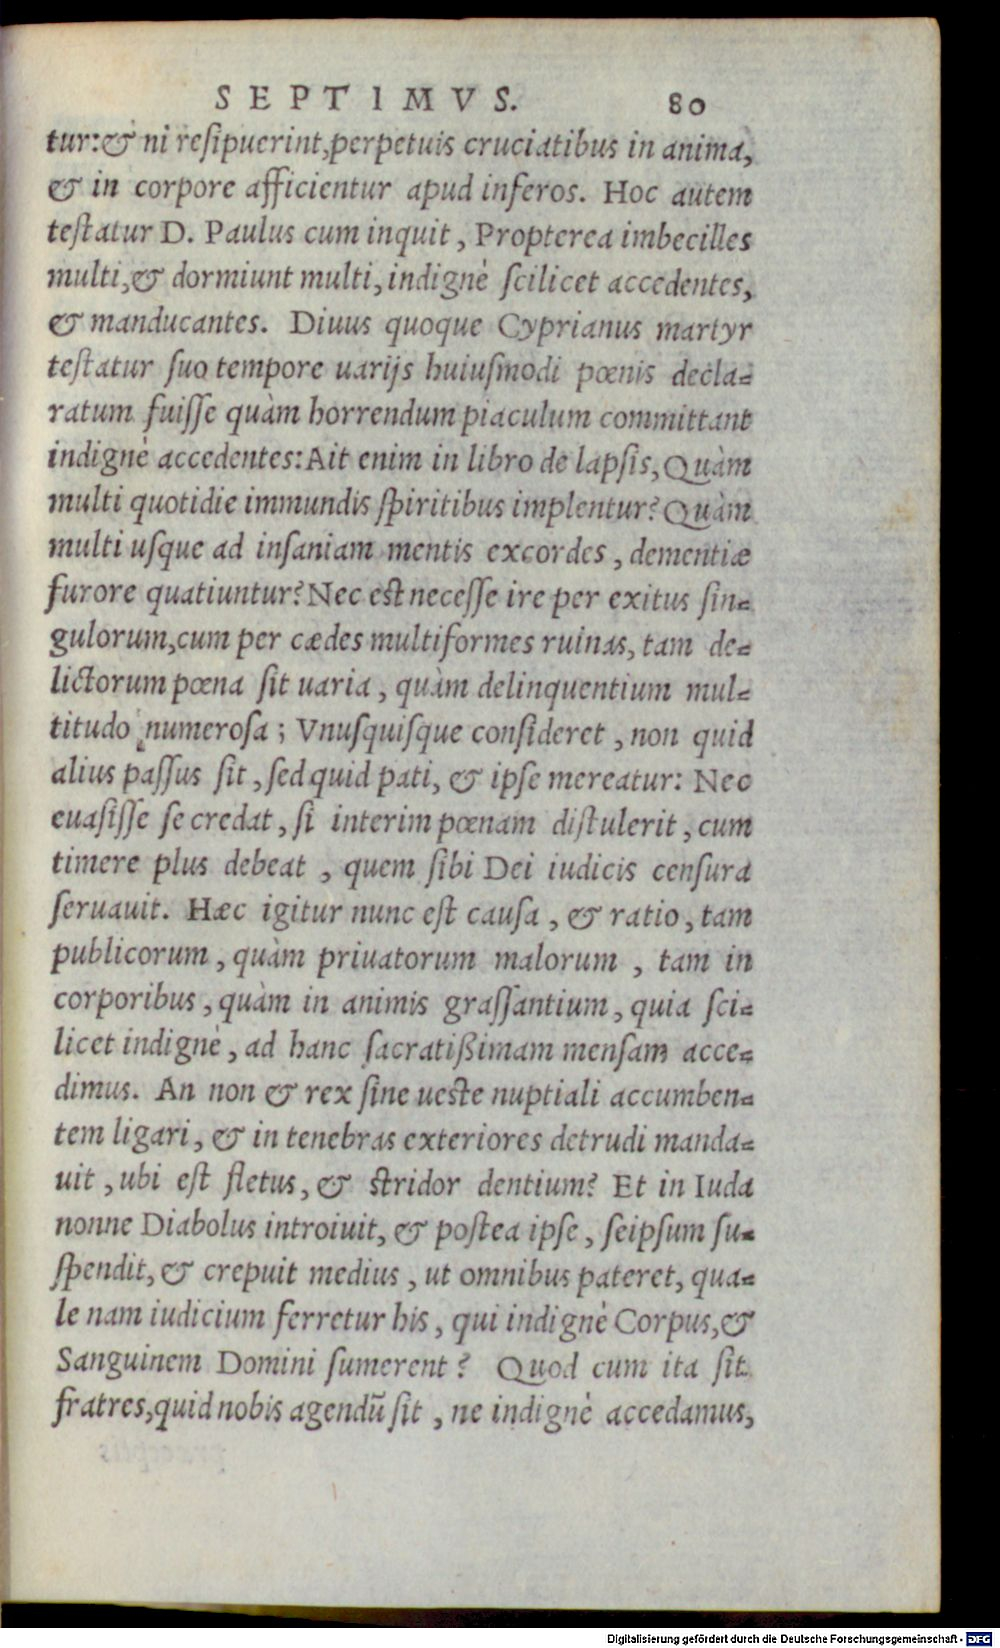 SEPTIMVS. 80
tur: & ni reſipuerint, perpetuis cruciatibus in anima,
& in corpore afficientur apud inferos. Hoc autem
teſtatur D. Paulus cum inquit, Propterea imbecilles
multi, & dormiunt multi, indignè ſcilicet accedentes,
& manducantes. Diuus quoque Cyprianus martyr
teſtatur ſuo tempore uarijs huiuſmodi pœnis decla-
ratum fuiſſe quàm horrendum piaculum committant
indignè accedentes: Ait enim in libro de lapſis, Quàm
multi quotidie immundis ſpiritibus implentur? Quàm
multi uſque ad inſaniam mentis excordes, dementiæ
furore quatiuntur? Nec eſt neceſſe ire per exitus ſin-
gulorum, cum per cædes multiformes ruinas, tam de-
lictorum pœna ſit uaria, quàm delinquentium mul-
titudo numeroſa; Vnuſquiſque conſideret, non quid
alius paſſus ſit, ſed quid pati, & ipſe mereatur: Nec
euaſiſſe ſe credat, ſi interim pœnam diſtulerit, cum
timere plus debeat, quem ſibi Dei iudicis cenſura
ſeruauit. Hæc igitur nunc eſt cauſa, & ratio, tam
publicorum, quàm priuatorum malorum, tam in
corporibus, quàm in animis graſſantium, quia ſci-
licet indignè, ad hanc ſacratißimam menſam acce-
dimus. An non & rex ſine ueſte nuptiali accumben-
tem ligari, & in tenebras exteriores detrudi manda-
uit, ubi eſt fletus, & ſtridor dentium? Et in Iuda
nonne Diabolus introiuit, & poſtea ipſe, ſeipſum ſu-
ſpendit, & crepuit medius, ut omnibus pateret, qua-
le nam iudicium ferretur his, qui indignè Corpus, &
Sanguinem Domini ſumerent? Quod cum ita ſit
fratres, quid nobis agendū ſit, ne indignè accedamus,
Digitalisierung gefördert durch die Deutsche Forschungsgemeinschaft - DFG